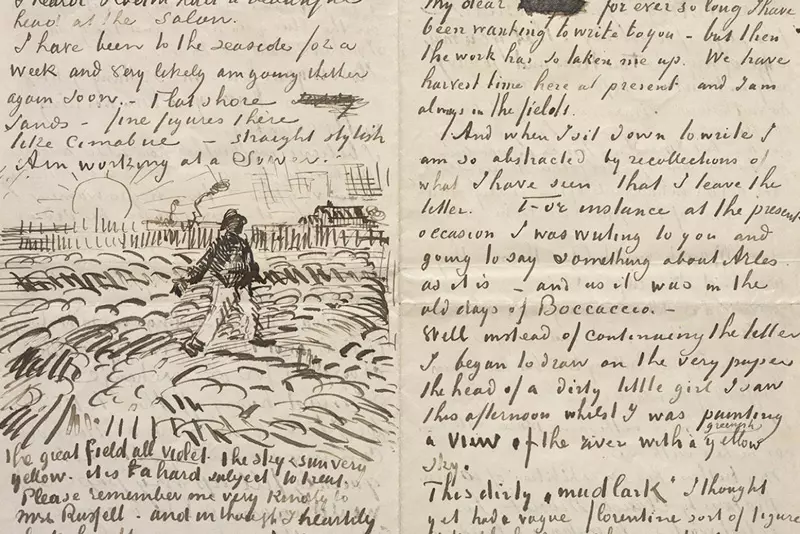 head at the Salon.
I have been to the seaside for a
week and very likely am going thither
again soon. - Flat shore
sands - fine figures there
like Cimabue - straight stylish
Am working at a Sower.
the great field all violet the sky & sun very
yellow. it is a hard subject to treat.
Please remember me very kindly to
mrs Russell - and in thought I heartily
My dear for ever so long I have
been wanting to write to you - but then
the work has so taken me up. We have
harvest time here at present and I am
always in the fields.
And when I sit down to write I
am so abstracted by recollections of
what I have seen that I leave the
letter. For instance at the present
occasion I was writing to you and
going to say something about Arles
as it is - and as it was in the
old days of Boccaccio. -
Well instead of continuing the letter
I began to draw on the very paper
the head of a dirty little girl I saw
this afternoon whilst I was painting
a view of the river with a greenish yellow
sky.
This dirty „mudlark" I thought
yet had a vague florentine sort of figure